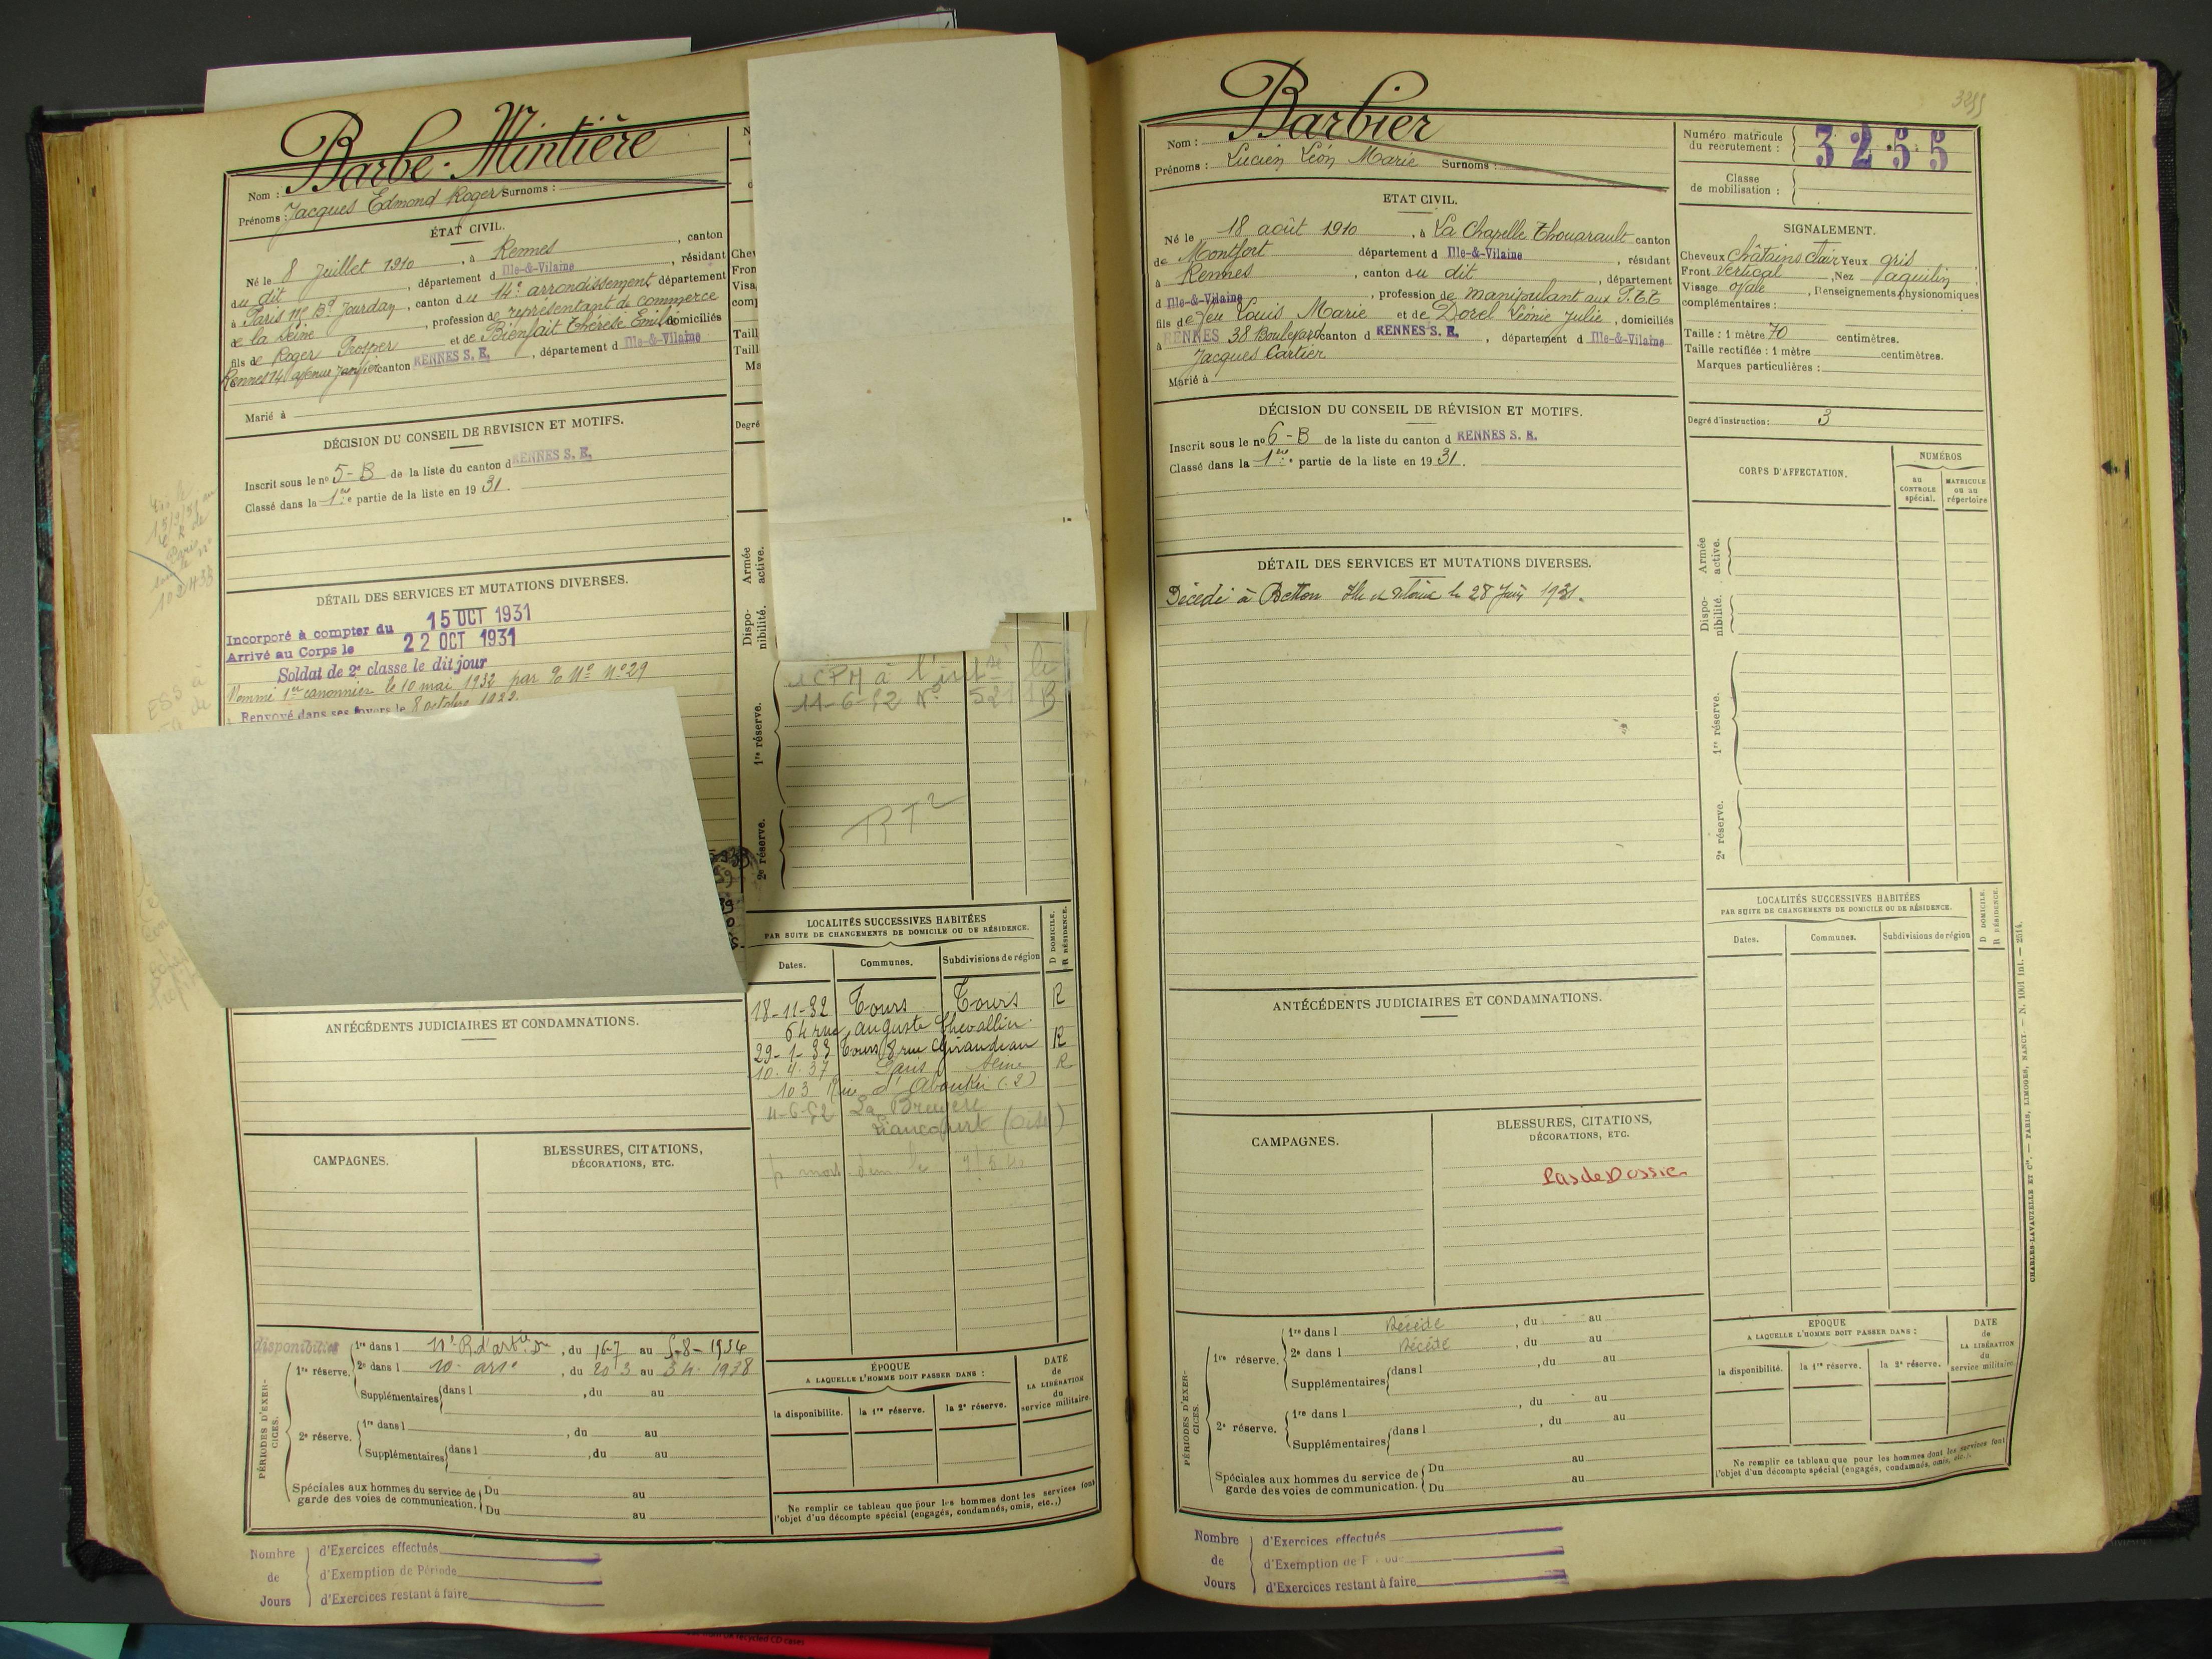 Barbe-Mintière
Nom :
Prénoms : Jacques Edmond Roger Surnoms :
ÉTAT CIVIL.
Né le 8 Juillet 1910, à Rennes, canton
du dit, département d Ille-&-Vilaine, résidant
à Paris Bd Jourdan, canton du 14e arrondissement département
de la Seine, profession de représentant de commerce
fils de Roger Prosper et de Bienfait Thérèse Emilie domiciliés
Rennes 14 avenue Janvier canton RENNES S. E., département d Ille-&-Vilaine
Marié à
DÉCISION DU CONSEIL DE REVISION ET MOTIFS.
Inscrit sous le no 5-B de la liste du canton d RENNES S. E.
Classé dans la 1re partie de la liste en 19 31.
DÉTAIL DES SERVICES ET MUTATIONS DIVERSES.
Incorporé à compter du 15 OCT 1931
Arrivé au Corps le 22 OCT 1931
Soldat de 2e classe le dit jour
Nommé 1er canonnier le 10 mai 1932 par No No 29
Renvoyé dans ses foyers le 8 octobre 1932.
ANTÉCÉDENTS JUDICIAIRES ET CONDAMNATIONS.
CAMPAGNES.
BLESSURES, CITATIONS,
DÉCORATIONS, ETC.
disponibilité
PÉRIODES D'EXERCICES.
1re réserve.
1re dans l, du 16-7 au 5-8-1934
2e dans l, du 20 3 au 3 4 1938
Supplémentaires dans l, du au
2e réserve.
1re dans l, du au
Supplémentaires dans l, du au
Spéciales aux hommes du service de
garde des voies de communication.
Du au
Du au
Nombre de Jours
d'Exercices effectués
d'Exemption de Période
d'Exercices restant à faire
Chev
Fron
Visa
comp
Taill
Taill
Ma
Degré
Armée active.
Disponibilité.
1re réserve.
2e réserve.
CPM à l'int le
11-6-52 No 521 1B
LOCALITÉS SUCCESSIVES HABITÉES
PAR SUITE DE CHANGEMENTS DE DOMICILE OU DE RÉSIDENCE.
D DOMICILE.
R RÉSIDENCE.
Dates. Communes. Subdivisions de région
18-11-32 Tours Tours R
64 rue Auguste Chevallier
29-1-33 Tours 8 rue Giraudeau R
10.4.37 Paris Seine R
103 Rue d'Aboukir (2)
4-6-52 La Bruyère
Liancourt (Oise)
ÉPOQUE
A LAQUELLE L'HOMME DOIT PASSER DANS :
la disponibilité. la 1re réserve. la 2e réserve.
DATE
de
LA LIBÉRATION
du
service militaire.
Ne remplir ce tableau que pour les hommes dont les services font
l'objet d'un décompte spécial (engagés, condamnés, omis, etc.,)
3255
Barbier
Nom :
Prénoms : Lucien Léon Marie Surnoms :
Numéro matricule
du recrutement :
3255
Classe
de mobilisation :
ETAT CIVIL.
Né le 18 août 1910, à La Chapelle Thouarault canton
de Montfort département d Ille-&-Vilaine, résidant
à Rennes, canton du dit, département
d Ille-&-Vilaine, profession de manipulant aux P.T.T
fils de feu Louis Marie et de Dorel Léonie Julie, domiciliés
à RENNES 38 Boulevard canton d RENNES S. E., département d Ille-&-Vilaine
Jacques Cartier
Marié à
SIGNALEMENT.
Cheveux châtains clair Yeux gris
Front vertical, Nez
Visage ovale, Renseignements physionomiques
complémentaires :
Taille : 1 mètre 70 centimètres.
Taille rectifiée : 1 mètre centimètres.
Marques particulières :
Degré d'instruction : 3
DÉCISION DU CONSEIL DE RÉVISION ET MOTIFS.
Inscrit sous le no 6-B de la liste du canton d RENNES S. E.
Classé dans la 1re partie de la liste en 19 31.
CORPS D'AFFECTATION.
NUMÉROS
au CONTROLE spécial.
MATRICULE ou au répertoire
Armée active.
Disponibilité.
1re réserve.
2e réserve.
DÉTAIL DES SERVICES ET MUTATIONS DIVERSES.
Décédé à Betton Ille et Vilaine le 28 Juin 1931.
LOCALITÉS SUCCESSIVES HABITÉES
PAR SUITE DE CHANGEMENTS DE DOMICILE OU DE RÉSIDENCE.
D DOMICILE.
R RÉSIDENCE.
Dates. Communes. Subdivisions de région
ANTÉCÉDENTS JUDICIAIRES ET CONDAMNATIONS.
CAMPAGNES.
BLESSURES, CITATIONS,
DÉCORATIONS, ETC.
Pas de Dossier
PÉRIODES D'EXERCICES.
1re réserve.
1re dans l Décédé, du au
2e dans l Décédé, du au
Supplémentaires dans l, du au
2e réserve.
1re dans l, du au
Supplémentaires dans l, du au
Spéciales aux hommes du service de
garde des voies de communication.
Du au
Du au
EPOQUE
A LAQUELLE L'HOMME DOIT PASSER DANS :
la disponibilité. la 1re réserve. la 2e réserve.
DATE
de
LA LIBÉRATION
du
service militaire.
Ne remplir ce tableau que pour les hommes dont les services font
l'objet d'un décompte spécial (engagés, condamnés, omis, etc.).
Nombre de Jours
d'Exercices effectués
d'Exemption de Période
d'Exercices restant à faire
CHARLES-LAVAUZELLE ET Cie. — PARIS, LIMOGES, NANCY. — N. 1001 int. — 2514.
recycled CD cases